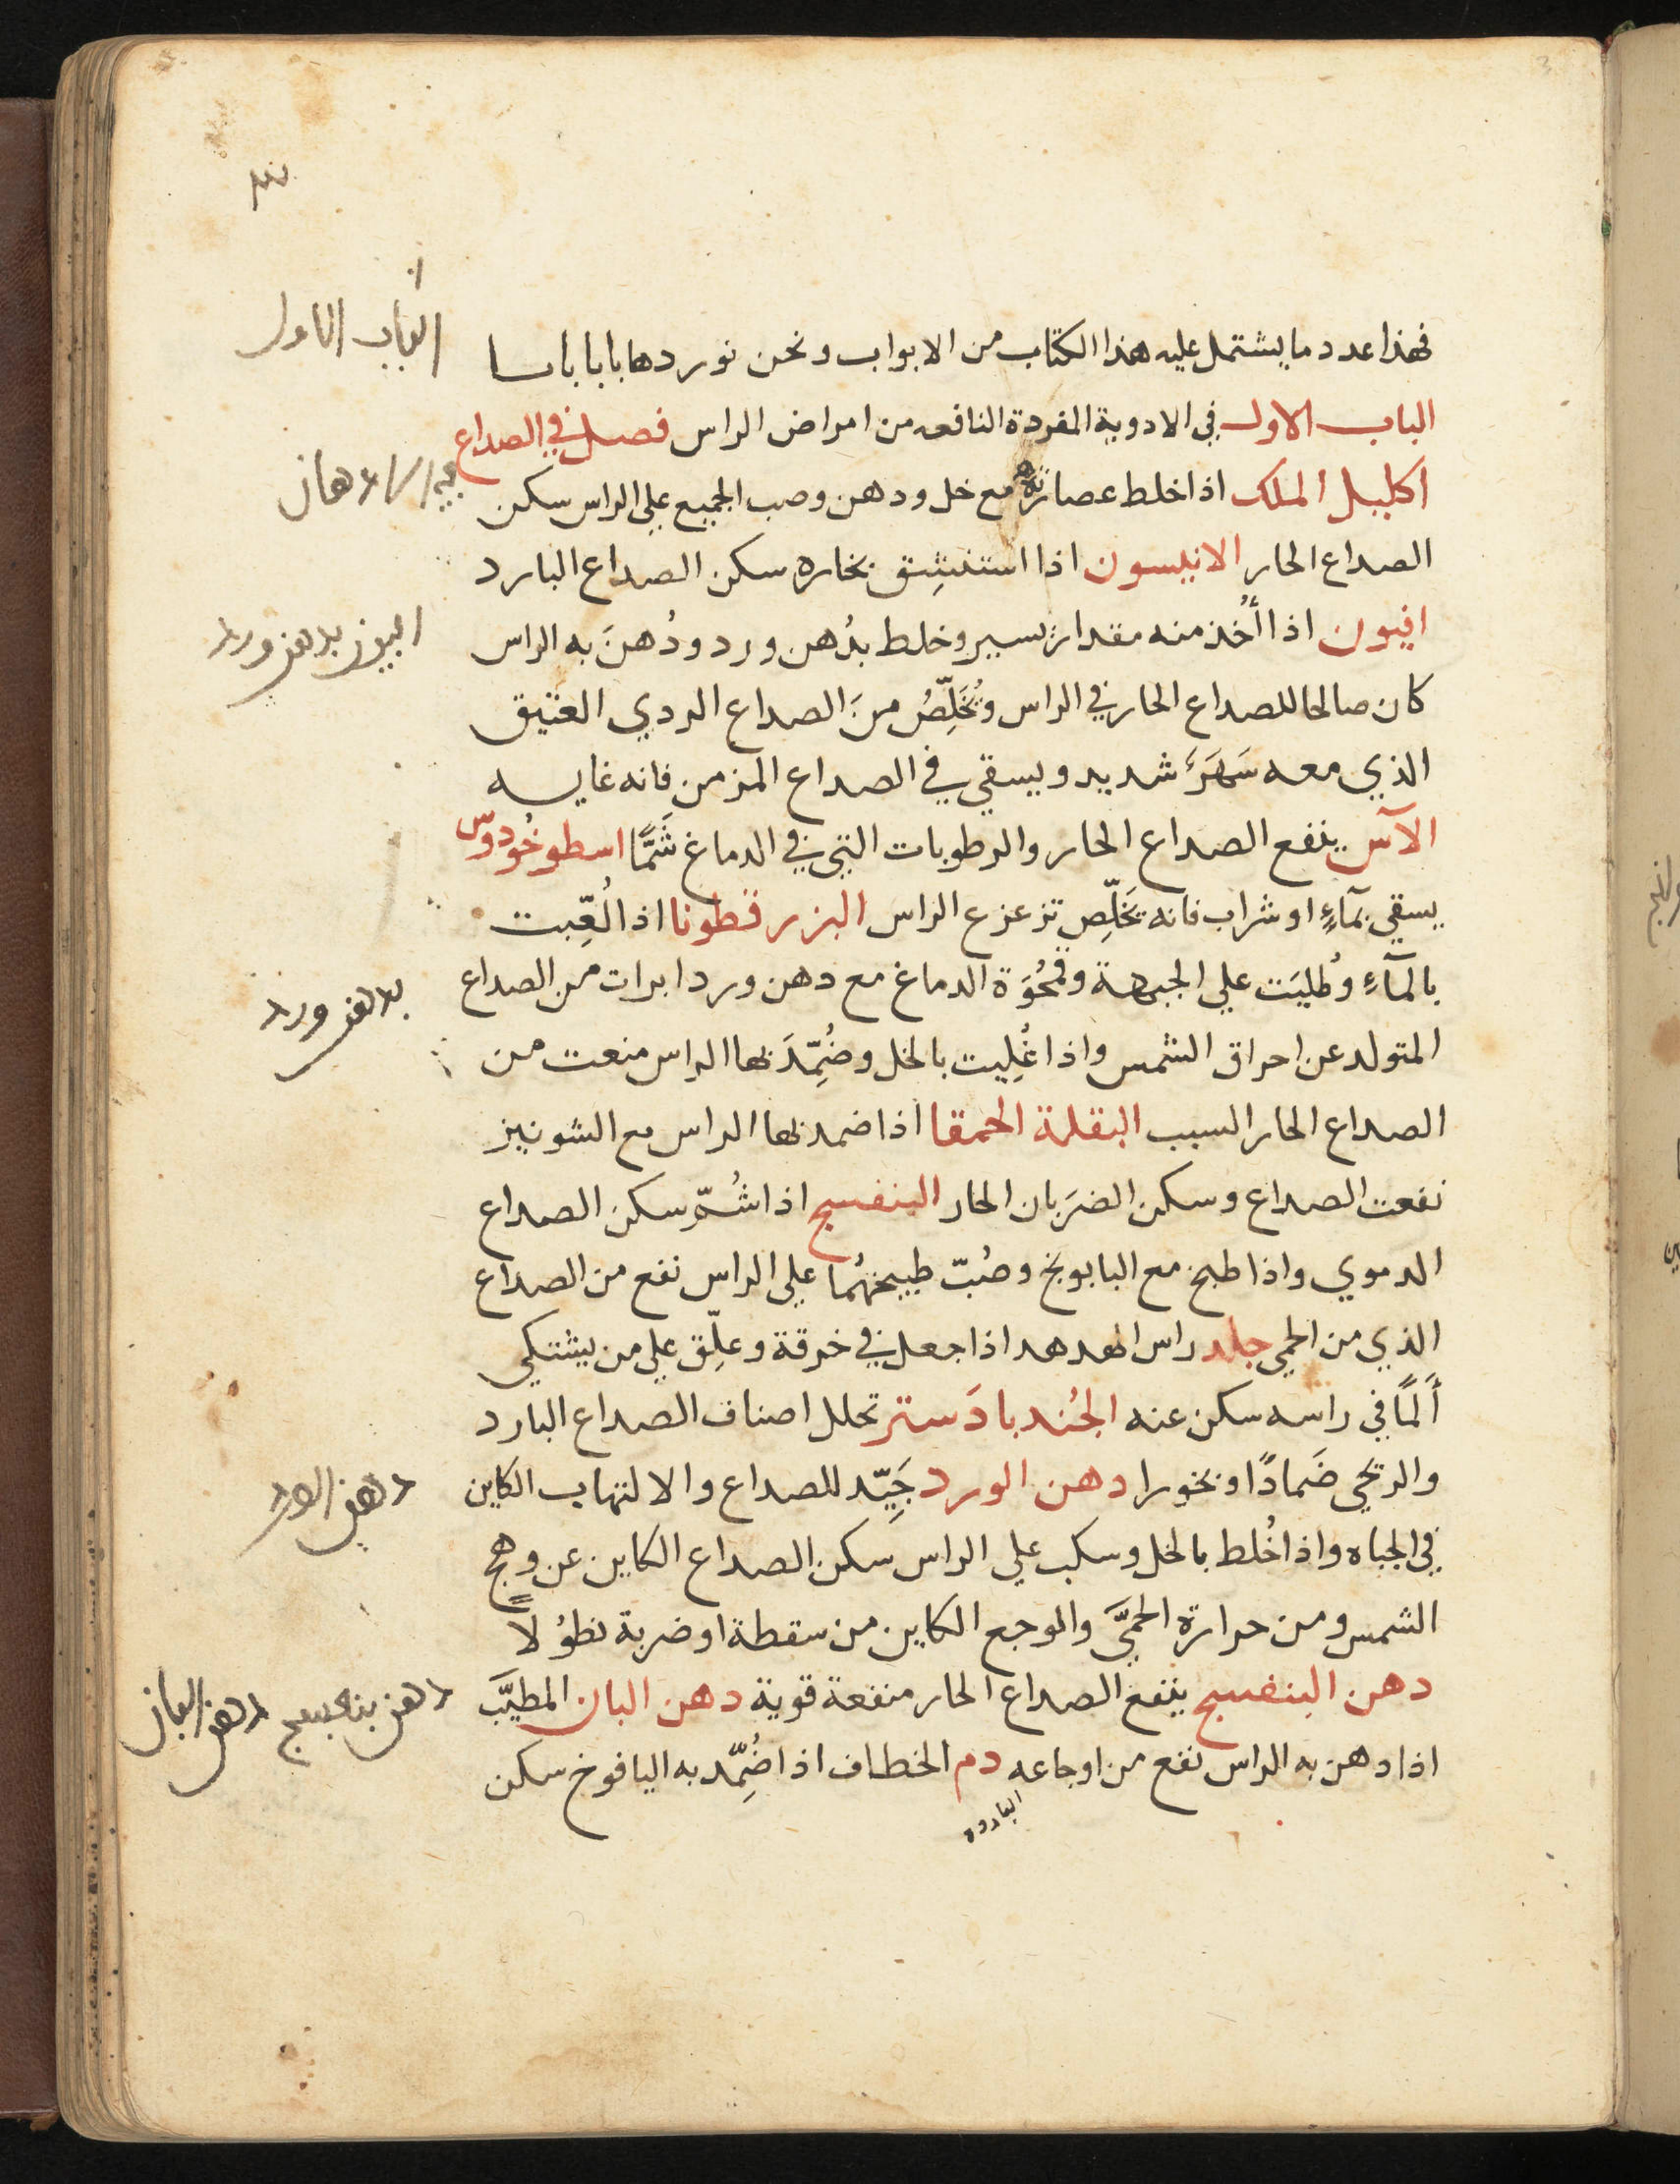 فهذا عدد ما يشتمل عليه هذا الكتاب من الابواب ونحن نوردها بابا بابا
الباب الاول في الادوية المفردة النافعه من امراض الراس فصل في الصداع
اكليل الملك اذا خلط عصارته مع خل ودهن وصب الجميع علي الراس سكن
الصداع الحار الانيسون اذا استنشِق بخاره سكن الصداع البارد
افيون اذا أُخذ منه مقدار يسير وخلط بدُهن ورد ودُهنَ به الراس
كان صالحا للصداع الحار في الراس وتُخَلِّصُ منَ الصداع الردي العتيق
الذي معه سَهَرٌ شديد ويسقي في الصداع المزمن فانه غايه
الآس ينفع الصداع الحار والرطوبات التي في الدماغ شَمًّا اسطوخُودوّس
يسقي بمآءٍ او شراب فانه يخَلِّص تزعزع الراس البزر قطونا اذا لُعِّبت
بالمآءِ وطُليَت علي الجبهة وقمحُوَة الدماغ مع دهن ورد ابرات من الصداع
المتولد عن احراق الشمس واذا غُلِيت بالخل وضُمِّدَ بها الراس منعت من
الصداع الحار السبب البقلة الحمقا اذا ضمد بها الراس مع الشونيز
نفعت الصداع وسكن الضرَبان الحار البنفسج اذا شُمّ سكن الصداع
الدموي واذا طبخ مع البابونج وصُبّ طبيخهُما علي الراس نفع من الصداع
الذي من الحمي جلد راس الهدهد اذا جعل في خرقة وعلِّق علي من يشتكي
أَلمًا في راسه سكن عنه الجُندبادَستر تحلل اصناف الصداع البارد
والريحي ضَمادًا وبخورا دهن الورد جَيِّد للصداع والالتهاب الكاين
في الجباه واذا خُلط بالخل وسكب علي الراس سكن الصداع الكاين عن وهج
الشمس ومن حرارة الحميَّ والوجع الكاين من سقطة او ضربة نطوُلاً
دهن البنفسج ينفع الصداع الحار منفعة قوية دهن البان المطيَّب
اذا دهن به الراس نفع من اوجاعه دم الخطاف اذا ضُمِّد به اليافوخ سكن
البارده
الباب الاول
بدهن ورد
دهن الورد
دهن بنفسج دهن البان